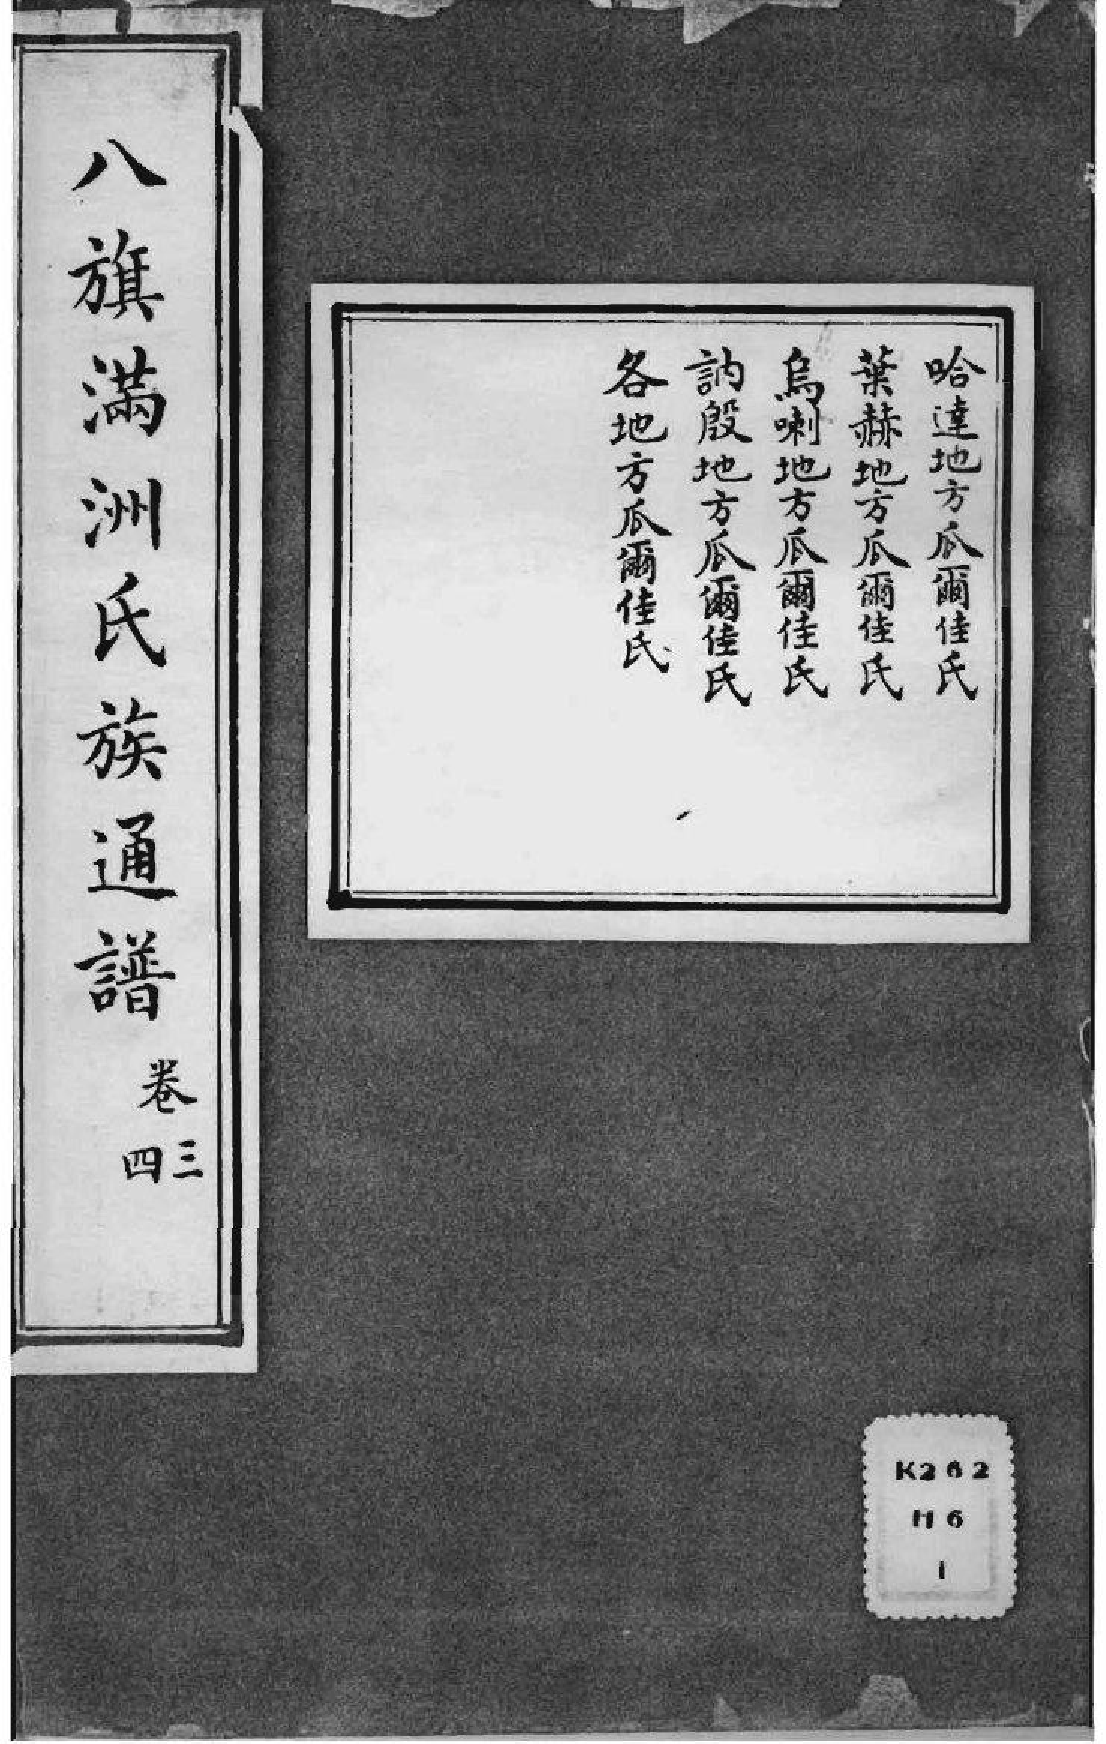 哈達地方瓜爾佳氏
葉赫地方瓜爾佳氏
烏喇地方瓜爾佳氏
訥殷地方瓜爾佳氏
各地方瓜爾佳氏
八旗滿洲氏族通譜
卷
三
四
K262
H6
1